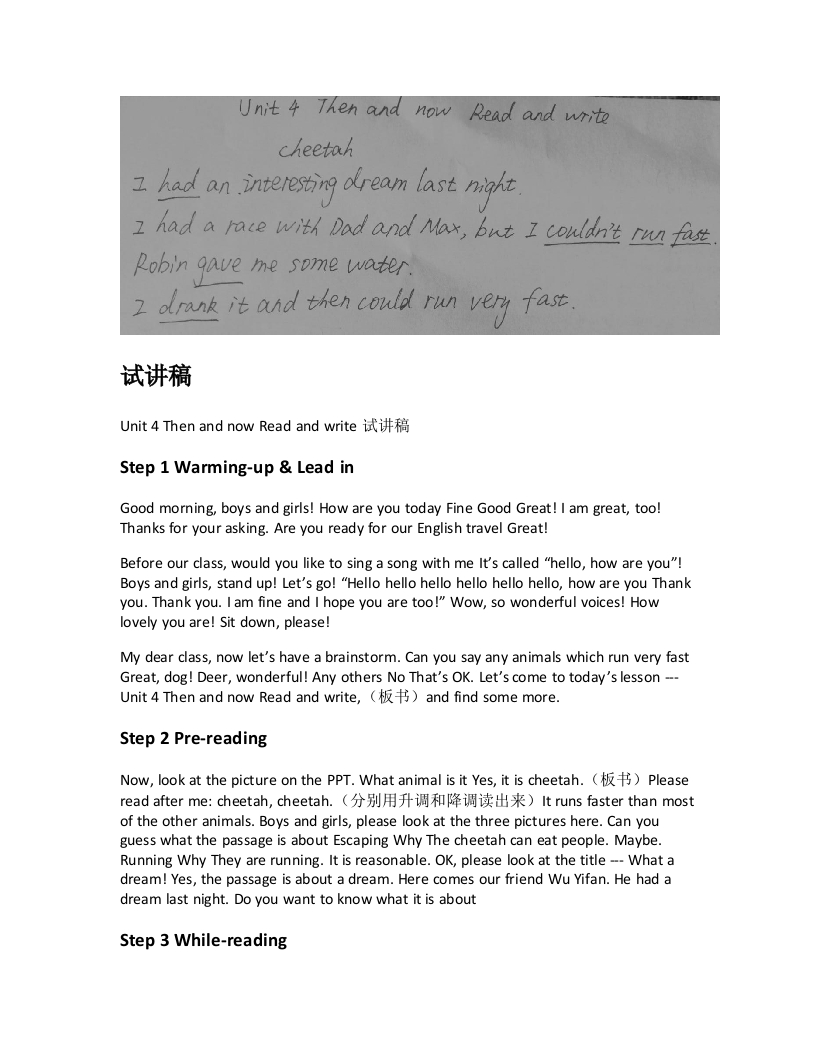 Unit 4 Then and now Read and write
cheetah
I had an interesting dream last night.
I had a race with Dad and Max, but I couldn't run fast.
Robin gave me some water.
I drank it and then could run very fast.
试讲稿
Unit 4 Then and now Read and write 试讲稿
Step 1 Warming-up & Lead in
Good morning, boys and girls! How are you today Fine Good Great! I am great, too!
Thanks for your asking. Are you ready for our English travel Great!
Before our class, would you like to sing a song with me It’s called “hello, how are you”!
Boys and girls, stand up! Let’s go! “Hello hello hello hello hello hello, how are you Thank
you. Thank you. I am fine and I hope you are too!” Wow, so wonderful voices! How
lovely you are! Sit down, please!
My dear class, now let’s have a brainstorm. Can you say any animals which run very fast
Great, dog! Deer, wonderful! Any others No That’s OK. Let’s come to today’s lesson ---
Unit 4 Then and now Read and write,（板书）and find some more.
Step 2 Pre-reading
Now, look at the picture on the PPT. What animal is it Yes, it is cheetah.（板书）Please
read after me: cheetah, cheetah.（分别用升调和降调读出来）It runs faster than most
of the other animals. Boys and girls, please look at the three pictures here. Can you
guess what the passage is about Escaping Why The cheetah can eat people. Maybe.
Running Why They are running. It is reasonable. OK, please look at the title --- What a
dream! Yes, the passage is about a dream. Here comes our friend Wu Yifan. He had a
dream last night. Do you want to know what it is about
Step 3 While-reading